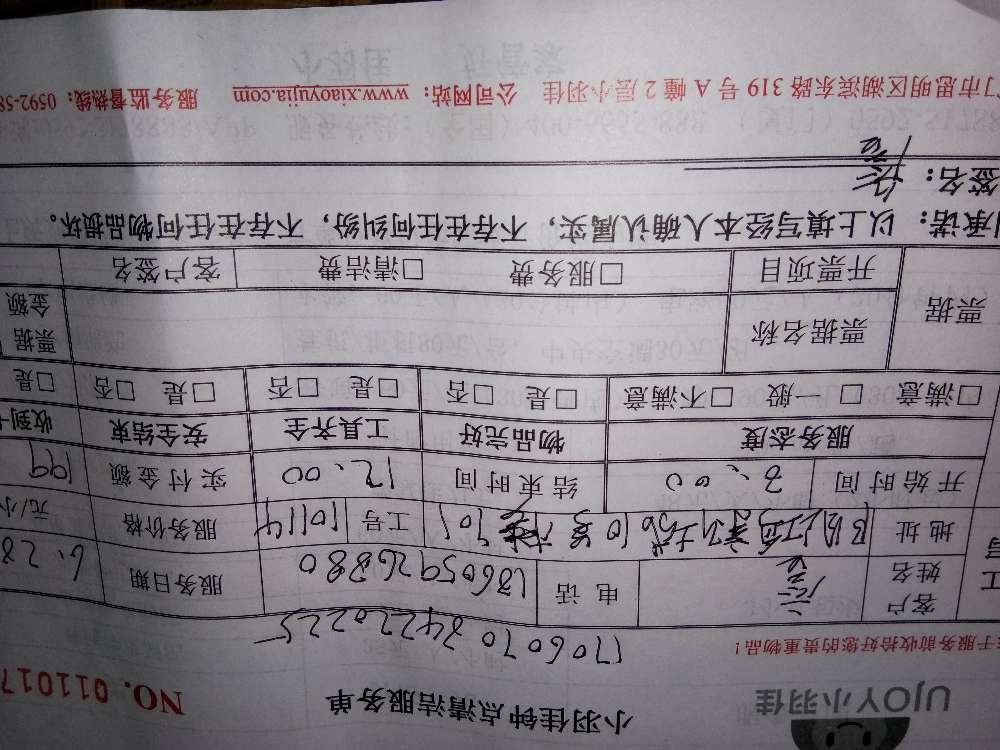 UJOY小羽佳
小羽佳钟点清洁服务单
NO. 011017
于服务前收拾好您的贵重物品!
客户姓名
电话 18605926880
服务日期 6.28
地址
工号 10114
服务价格 元/小
开始时间 8:00
结束时间 12:00
实付金额 199
服务态度 物品完好 工具齐全 安全结束 收到
□满意 □一般 □不满意 □是 □否 □是 □否 □是 □否 □是
票据 票据名称 票据金额
开票项目 □服务费 □清洁费 客户签名
承诺:以上填写经本人确认属实,不存在任何纠纷,不存在任何物品损坏。
签名:
门市思明区湖滨东路 319 号 A 幢 2 层小羽佳 公司网站:www.xiaoyujia.com 服务监督热线:0592-58